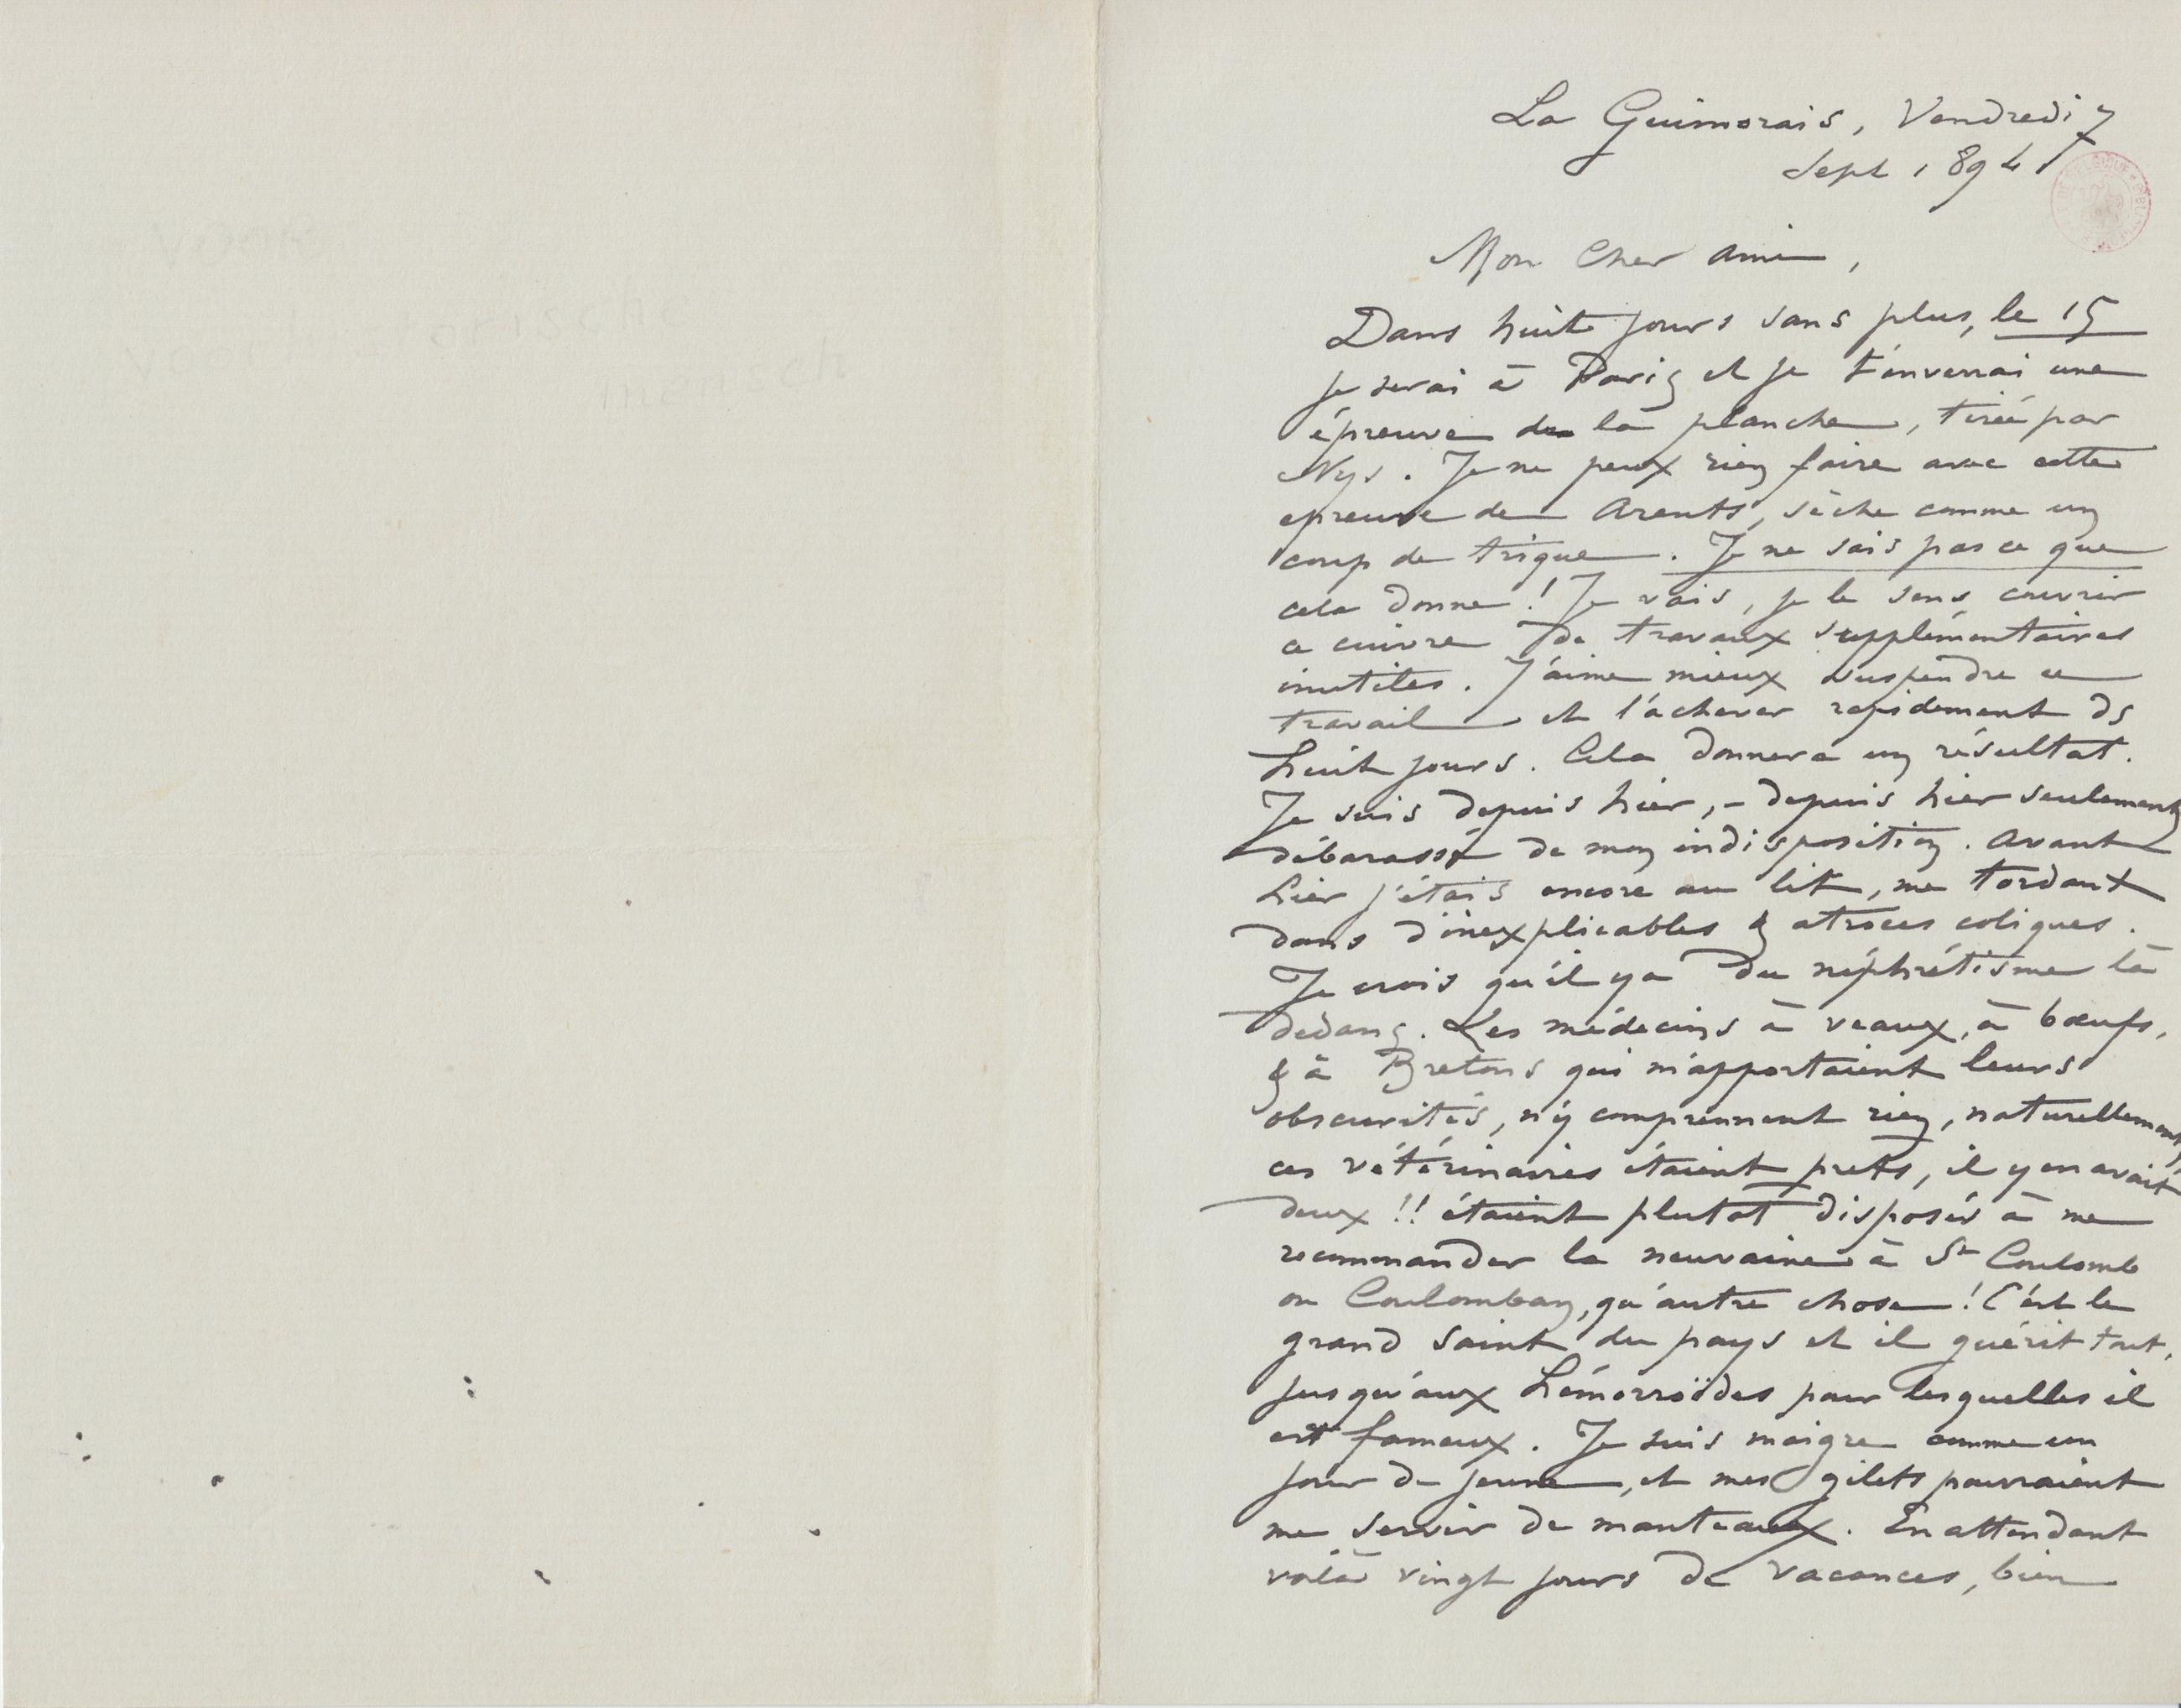 La Guimorais, Vendredi 7
Sept 1894
Mon Cher ami,
Dans huit jours sans plus, le 15
je serai à Paris et je t'enverrai une
épreuve de la planche, tirée par
Nys. Je ne peux rien faire avec cette
epreuve de Arents, sèche comme un
coup de trique. Je ne sais pas ce que
cela donne! Je vais, je le sens couvrir
ce cuivre de travaux supplémentaires
inutiles. J'aime mieux suspendre ce
travail et l'achever rapidement ds
huit jours. Cela donnera un résultat.
Je suis depuis hier, – depuis hier seulement
débarassé de mon indisposition. Avant
hier j'étais encore au lit, me tordant
dans d'inexplicables & atroces coliques.
Je crois qu'il y a du néphrétisme là
dedans. Les médecins à veaux, à bœufs,
& à Bretons qui m'apportaient leurs
obscurités, n'y comprennent rien, naturellement
ces vétérinaires étaient prets, il y en avait
deux!! étaient plutot disposés à me
recommander la neuvaine à St Coulomb
ou Coulomban, qu'autre chose! C'est le
grand saint du pays et il guérit tout,
jusqu'aux hémorroïdes pour lesquelles il
est fameux. Je suis maigre comme un
jour de jeune, et mes gilets pourraient
me servir de manteaux. En attendant
voilà vingt jours de vacances, bien